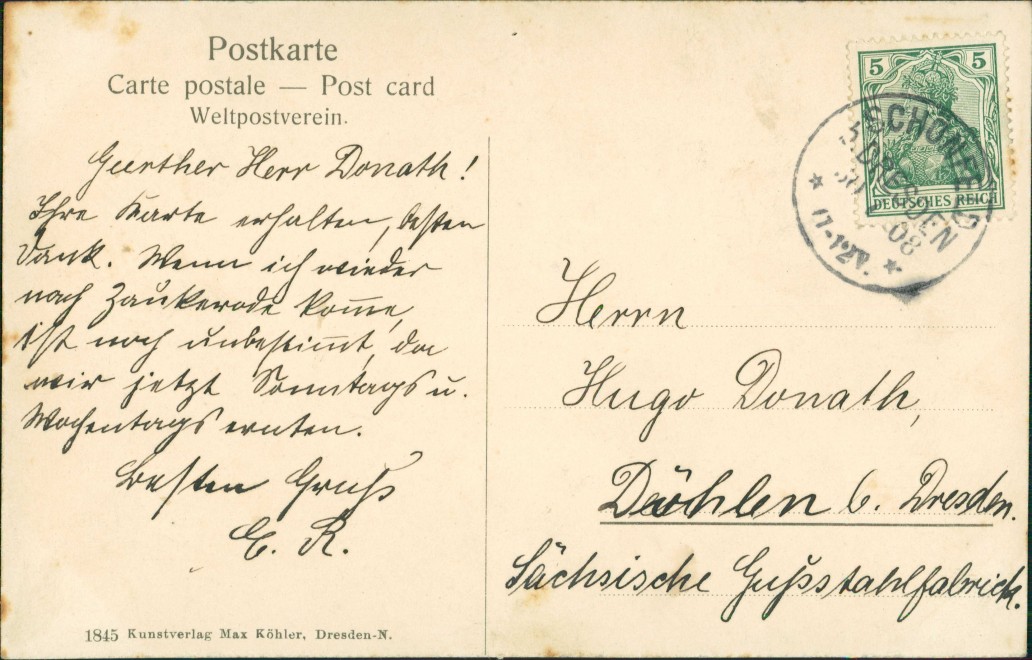 Postkarte
Carte postale — Post card
Weltpostverein.
Geerther Herr Donath!
Ihre Karte erhalten, besten
Dank. Wenn ich wieder
nach Zaukerode kom̅e,
ist noch unbestim̅t, da
wir jetzt Sonntags u.
Wochentags ernten.
Besten Gruß
E. R.
1845 Kunstverlag Max Köhler, Dresden-N.
5 5
DEUTSCHES REICH
SCHÖNFELD
DRESDEN
08
11-12V.
Herrn
Hugo Donath,
Döhlen b. Dresden.
Sächsische Gußstahlfabrick.